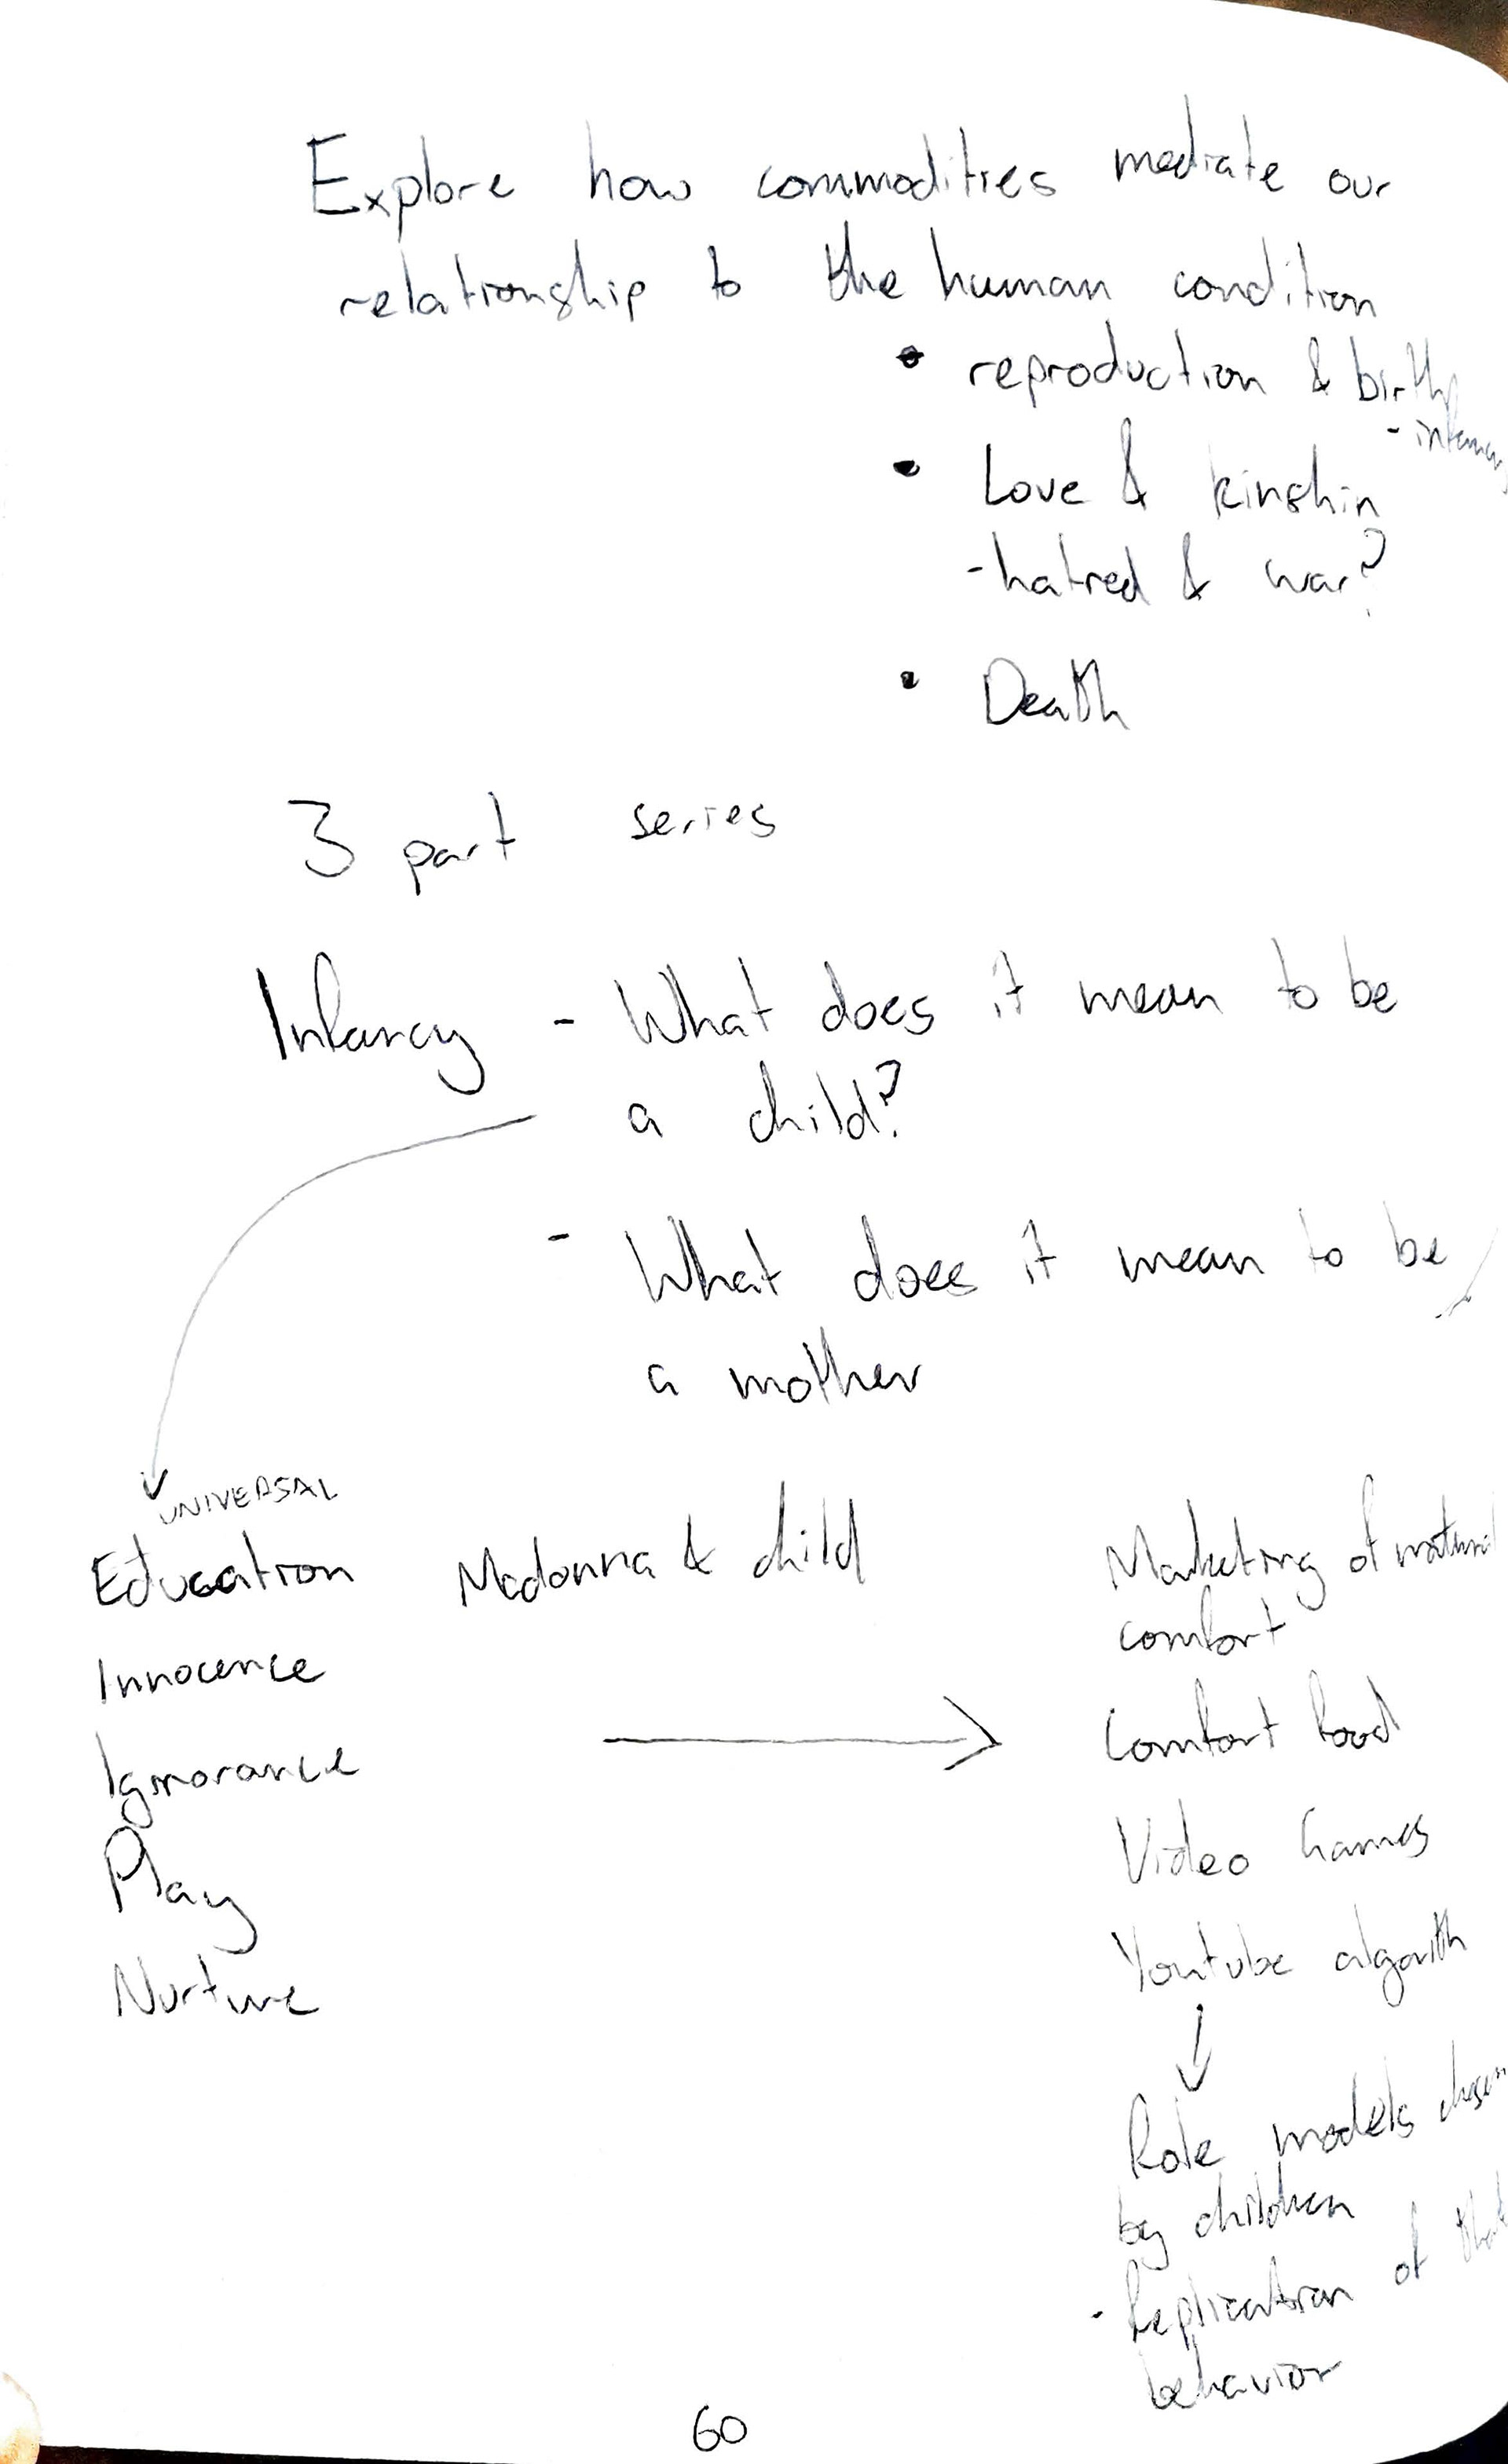 Explore how commodities mediate our
relationship to the human condition
• reproduction & birth
- infancy
• Love & kinship
- hatred & war?
• Death
3 part series
Infancy - What does it mean to be
a child?
- What does it mean to be
a mother
UNIVERSAL
Education
Innocence
Ignorance
Play
Nurture
Madonna & child
Marketing of
comfort
Comfort food
Video Games
Youtube algorith
Role models chosen
by children
- Replication of that
behavior
60